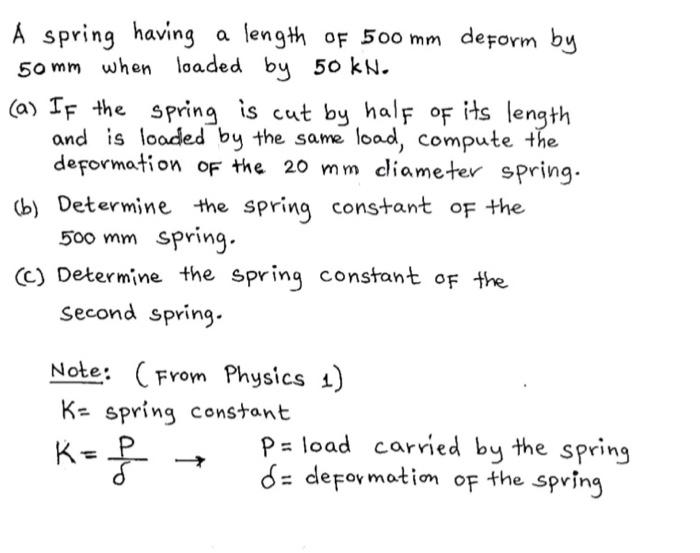 A spring having a length of 500 mm deform by
50 mm when loaded by 50 kN.
(a) If the spring is cut by half of its length
and is loaded by the same load, compute the
deformation of the 20 mm diameter spring.
(b) Determine the spring constant of the
500 mm spring.
(c) Determine the spring constant of the
second spring.
Note: (From Physics 1)
K= spring constant
K = P/δ → P = load carried by the spring
δ = deformation of the spring